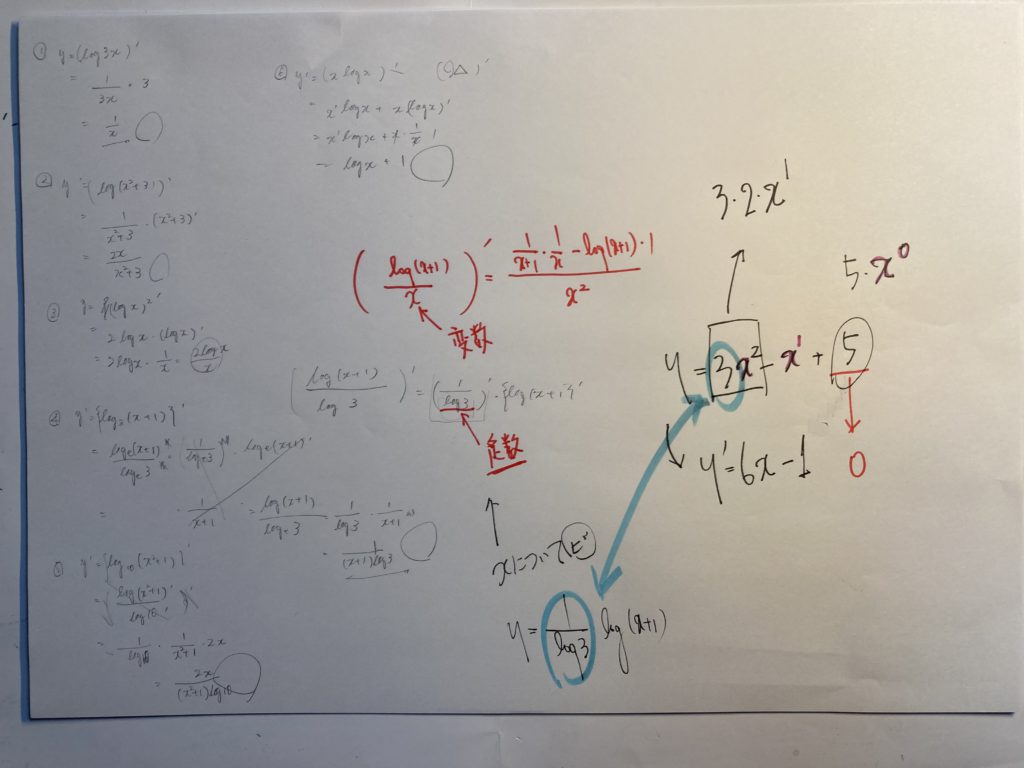 ① y=(log3x)'
= 1/3x · 3
= 1/x
② y'=(log(x²+3))'
= 1/x²+3 · (x²+3)'
= 2x/x²+3
③ y={(logx)²}'
= 2logx · (logx)'
= 2logx · 1/x = 2logx/x
y'={log₃(x+1)}'
logₑ(x+1)/logₑ3
1/x+1
= log(x+1)/logₑ3
1/log3 · 1/x+1
= 1/(x+1)log3
y'={log₁₀(x²+1)}'
log(x²+1)'/log10
= 1/log10 · 1/x²+1 · 2x
= 2x/(x²+1)log10
y'=(xlogx)' (○△)'
= x'logx + x(logx)'
= x'logx + x · 1/x
= logx + 1
(log(x+1)/x)' = 1/x+1 · 1/x − log(x+1) · 1/x²
変数
(log(x+1)/log3)' = (1/log3)' · {log(x+1)}'
定数
xについて
y = 1/log3 log(x+1)
3·2·x¹
5·x⁰
y = 3x² − x¹ + 5
y' = 6x − 1
0